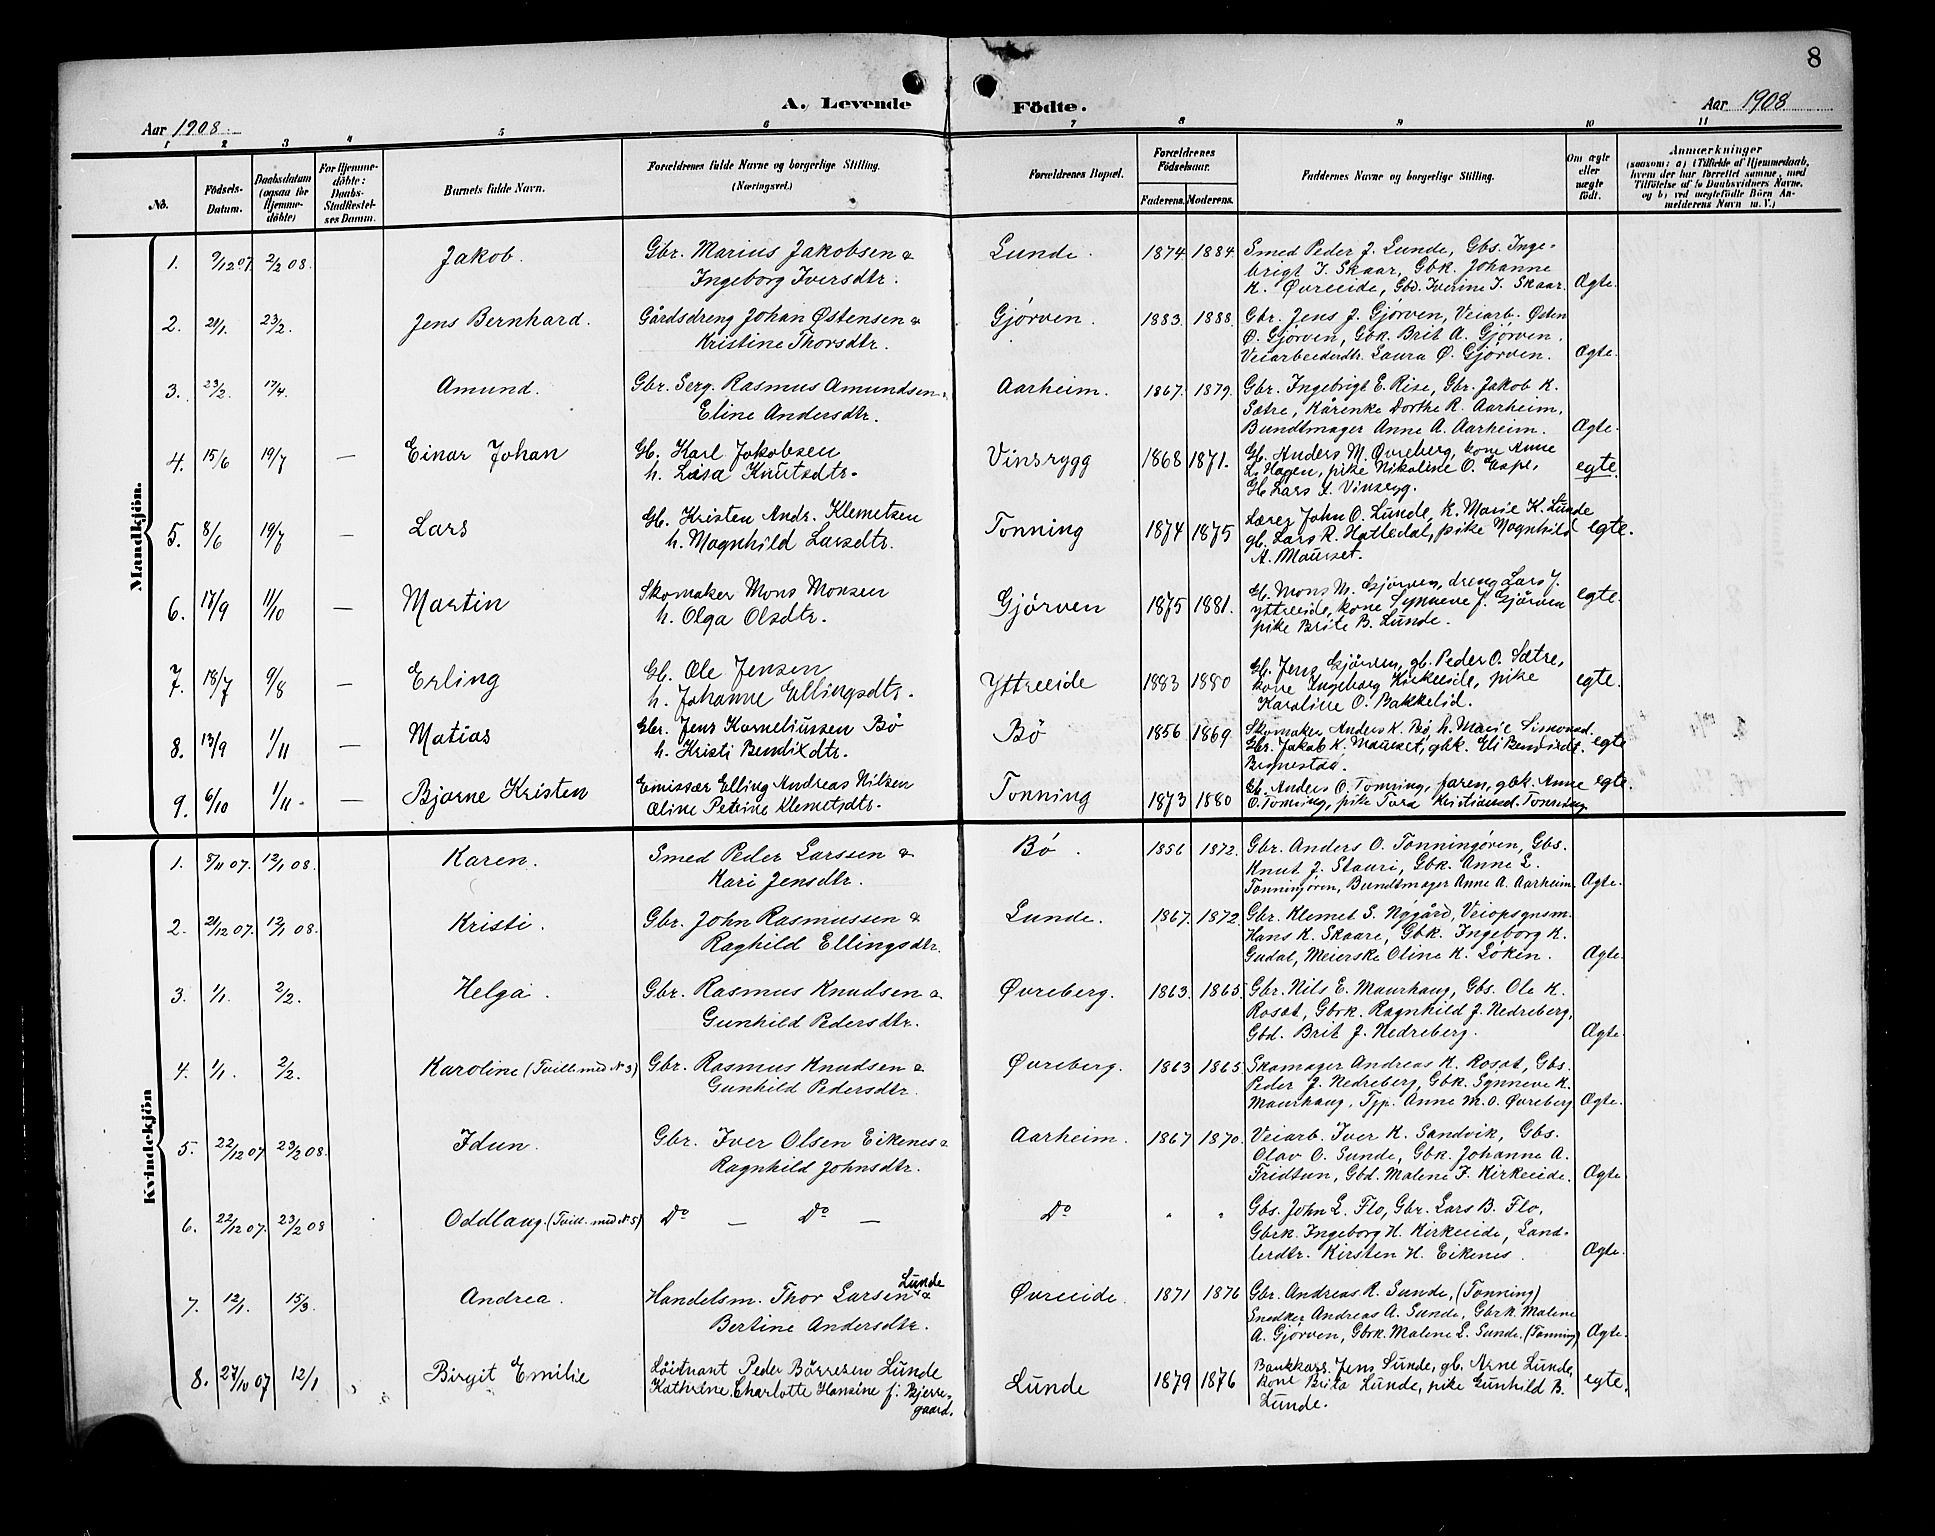 8
A. Levende Födte.
Aar 1908
Aar 1908
1 2 3 4 5 6 7 8 9 10 11
No.
Födsels-Datum.
Daabsdatum (ogsaa for Hjemmedöbte)
For Hjemmedöbte: Daabs-Stadfæstelses Datum.
Barnets fulde Navn.
Forældrenes fulde Navne og borgerlige Stilling. (Næringsvei.)
Forældrenes Bopæl.
Forældrenes Födselsaar.
Faderens. Moderens.
Faddernes Navne og borgerlige Stilling.
Om ægte eller uægte födt.
Anmærkninger
(saasom: a) i Tilfælde af Hjemmedaab, hvem der har forrettet samme, med Tilföielse af to Daabsvidners Navne, og b) ved uægtefödte Börn Anmelderens Navn m. V.)
Mandkjön.
1. 9/12 07. 2/2 08. Jakob. Gbr. Marius Jakobsen & Lunde. 1874 1884. Smed Peder J. Lunde, Gbs. Inge-
Ingeborg Iversdtr. brigt I. Skaar, Gbk. Johanne
K. Øvreeide, Gbd. Iverine I. Skaar. Ægte.
2. 21/1. 23/2. Jens Bernhard. Gårdsdreng Johan Østensen & Gjørven. 1883. 1888. Gbr. Jens J. Gjørven, Veiarb. Østen
Kristine Thorsdtr. O. Gjørven, Gbk. Brit A. Gjørven.
Veiarbeiderdtr. Laura Ø. Gjørven. Ægte.
3. 23/2. 17/4. Amund. Gbr. Serg. Rasmus Amundsen & Aarheim. 1867. 1879. Gbr. Ingebrigt E. Rise, Gbr. Jakob K.
Eline Andersdtr. Sætre, Kårenke Dorthe R. Aarheim,
Bundtmager Anne A. Aarheim. Ægte.
4. 15/6 19/7 — Einar Johan Gb. Karl Jakobsen Vinsrygg 1868 1871. Gb. Anders M. Øvreberg, kone Anne
h. Lisa Knutsdtr. L. Hagen, pike Nikoline O. Espe,
Gb. Lars L. Vinsryg. egte.
5. 8/6 19/7 — Lars Gb. Kristen Andr. Klemetsen Tonning 1874 1875 Lærer John O. Lunde, k. Marie K. Lunde
h. Magnhild Larsdtr. gb. Lars R. Hatledal, pike Magnhild egte.
A. Maurset.
6. 17/9 11/10 — Martin Skomaker Mons Monsen Gjørven 1875 1881. Gb. Mons M. Gjørven, dreng Lars J.
h. Olga Olsdtr. Yttreeide, kone Synneve J. Gjørven egte.
pike Brite B. Lunde.
7. 18/7 9/8 — Erling Gb. Ole Jensen Yttreeide 1883 1880 Gb. Jens Gjørven, gb. Peder O. Sætre,
h. Johanne Ellingsdtr. kone Ingeborg Kirkeeide, pike egte.
Karoline O. Bakkelid.
8. 13/9 1/11 — Matias Gbr. Jens Korneliussen Bö Bö 1856 1869 Skomaker Anders K. Bö, h. Marie Simonsd.
h. Kristi Bendixdtr. Gbr. Jakob K. Maurset, gbk. Eli Bendixdt. egte
9. 6/10 1/11 — Bjarne Kristen Emissær Elling Andreas Nilsen Tonning 1873 1880 Gb. Anders O. Tonning, faren, gbk. Anne egte.
Oline Petrine Klemetsdtr. O. Tonning, pike Tora Kristiansd. Tonning
Kvindekjön
1. 8/11 07. 12/1 08. Karen. Smed Peder Larssen & Bö. 1856 1872. Gbr. Anders O. Tonningøren, Gbs.
Kari Jensdtr. Knut J. Stauri, Gbk. Anne L.
Tonningøren, Bundtmager Anne A. Aarheim. Ægte.
2. 21/12 07. 12/1 08. Kristi. Gbr. John Rasmussen & Lunde. 1867. 1872. Gbr. Klemet S. Nygård, Veiopsynsm.
Raghild Ellingsdtr. Hans K. Skaare, Gbk. Ingeborg K.
Gudal, Meierske Oline K. Løken. Ægte.
3. 1/1. 2/2. Helga. Gbr. Rasmus Knudsen & Øvreberg. 1863. 1865. Gbr. Nils E. Maurhaug, Gbs. Ole K.
Gunhild Pedersdtr. Rosat, Gbrk. Ragnhild J. Nedreberg,
Gbd. Brit J. Nedreberg. Ægte.
4. 1/1. 2/2. Karoline (Tvill. med № 3) Gbr. Rasmus Knudsen & Øvreberg. 1863 1865. Skomager Andreas K. Rosat, Gbs.
Gunhild Pedersdtr. Peder J. Nedreberg, Gbk. Synneve K.
Maurhaug, Tjp. Anne M. O. Øvreberg Ægte.
5. 22/12 07 23/2 08. Idun. Gbr. Iver Olsen Eikenes & Aarheim. 1867 1870. Veiarb. Iver K. Sandvik, Gbs.
Ragnhild Johnsdtr. Olav O. Sunde, Gbk. Johanne A.
Fridtun, Gbd. Malene F. Kirkeeide. Ægte.
6. 22/12 07. 23/2 08 Oddlaug. (Tvill. med № 5) Do — Do — Do " " Gbs. John L. Flo, Gbr. Lars B. Flo,
Gbrk. Ingeborg H. Kirkeeide, Land-
lerdtr. Kirsten H. Eikenes. Ægte.
7. 12/1. 15/3. Andrea. Handelsm. Thor Larsen Lunde & Øvreeide. 1871 1876 Gbr. Andreas R. Sunde, (Tonning)
Bertine Andersdtr. Snedker Andreas A. Sunde, Gbrk. Malene
A. Gjørven, Gbrk. Malene L. Sunde. (Tonning) Ægte.
8. 27/10 07 12/1 Birgit Emilie Löitnant Peder Börresen Lunde Lunde 1879 1876 Bankkass. Jens Lunde, gb. Arne Lunde,
Kathrine Charlotte Hansine f. Bjerre- kone Brita Lunde, pike Gunhild B. egte.
gaard. Lunde.